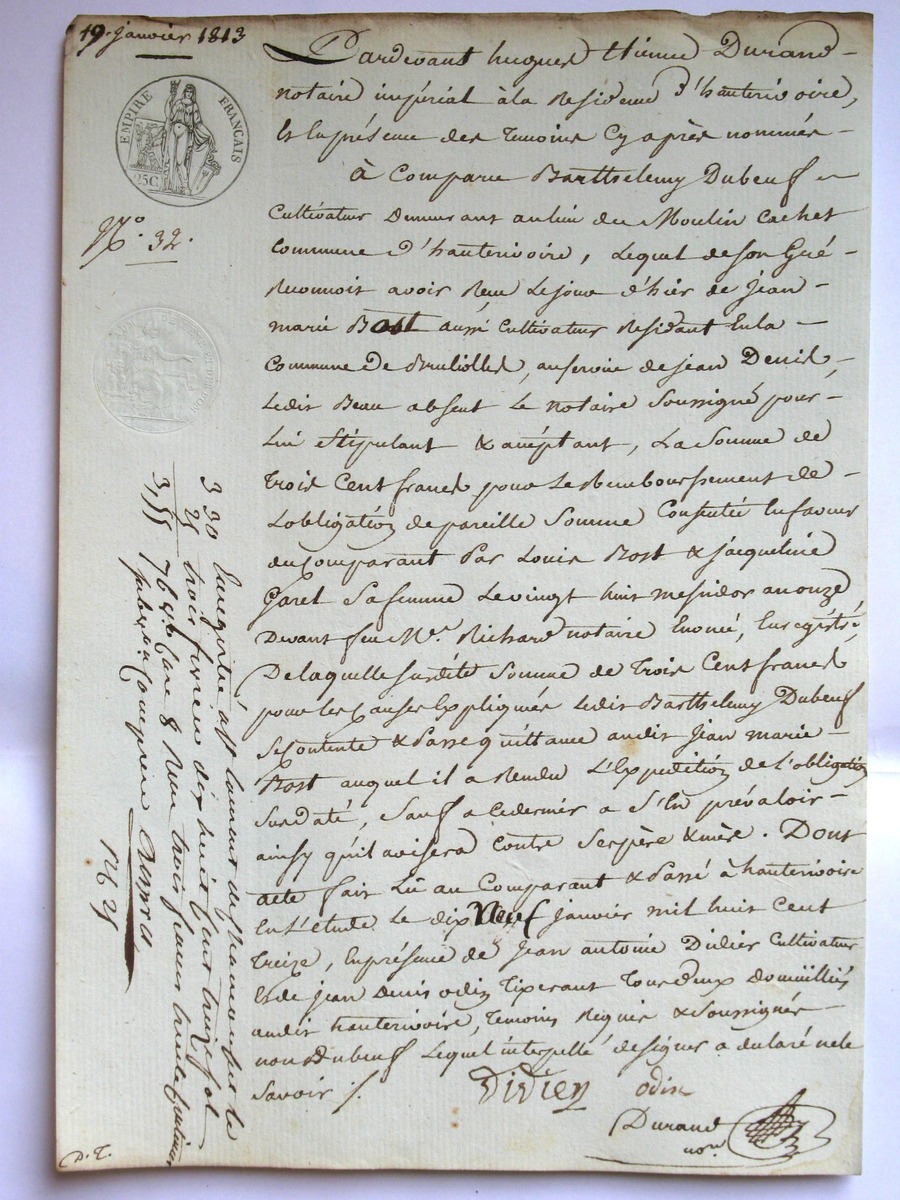 19 janvier 1813
EMPIRE FRANÇAIS
25C
N.º 32.
Pardevant hugues Etienne Durand
notaire impérial à la Residence d'hauterivoire,
et En présence des temoins Cy après nommés
à Comparu Barthelemy Dubeuf
Cultivateur Demeurant au lieu du Moulin Cachet
Commune d'hauterivoire, Lequel de son Gré
Reconnoit avoir Reçu Le jour d'hier de jean
marie Bost aussi Cultivateur Residant En la
Commune de Brulliolles, au service de jean Denis,
Ledit Beau absent Le notaire Soussigné pour
Lui Stipulant & acceptant, La Somme de
Trois Cent francs pour Le Remboursement de
L'obligation de pareille Somme Consentie En faveur
du Comparant Par Louis Bost & jacqueline
Garel Sa femme Le vingt huit messidor an onze
Devant feu Me. Richard notaire Enoncé, Enregistré,
De laquelle susdite Somme de Trois Cent francs
pour les Causes Expliquées Ledit Barthelemy Dubeuf
Se Contente & Passe quittance audit jean marie
Bost auquel il a Rendu L'Expedition de L'obligation
Susdaté, Sauf a Ce dernier a S'En prévaloir
ainsy qu'il avisera Contre Ses père & mère. Dont
acte fait Lû au Comparant & Passé à hauterivoire
En L'étude Le dix Neuf janvier mil huit Cent
Treize, En présence de Sr jean antoine Didier Cultivateur
Et de jean Denis odin Tixerant Tous deux Domicilliés
audit hauterivoire, Temoins Requis & Soussignés
non Dubeuf Lequel interpellé de signer a declaré ne le
Savoir /.
Didier odin
Durand
nore
3 30 Enregistré à St Laurent de Chamousset le
25 trois fevrier dix huit Cent treize fol
3,55 76 Vo Case 8 Reçu trois francs trente Centimes
1625
D. T.